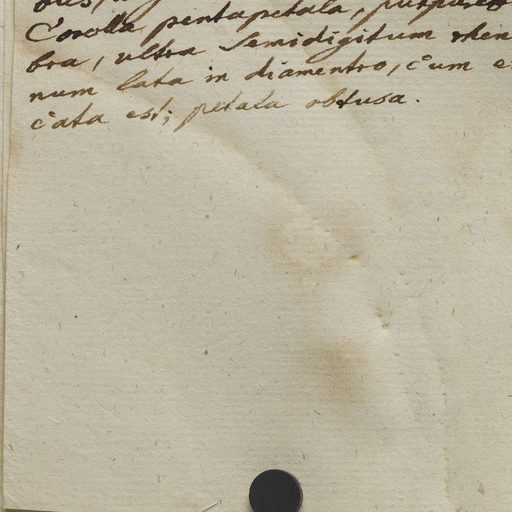 Corolla pentapetala, purpureo
bra, ultra Semidigitum rhen
num lata in diamentro, cum e
cata est; petala obtusa.